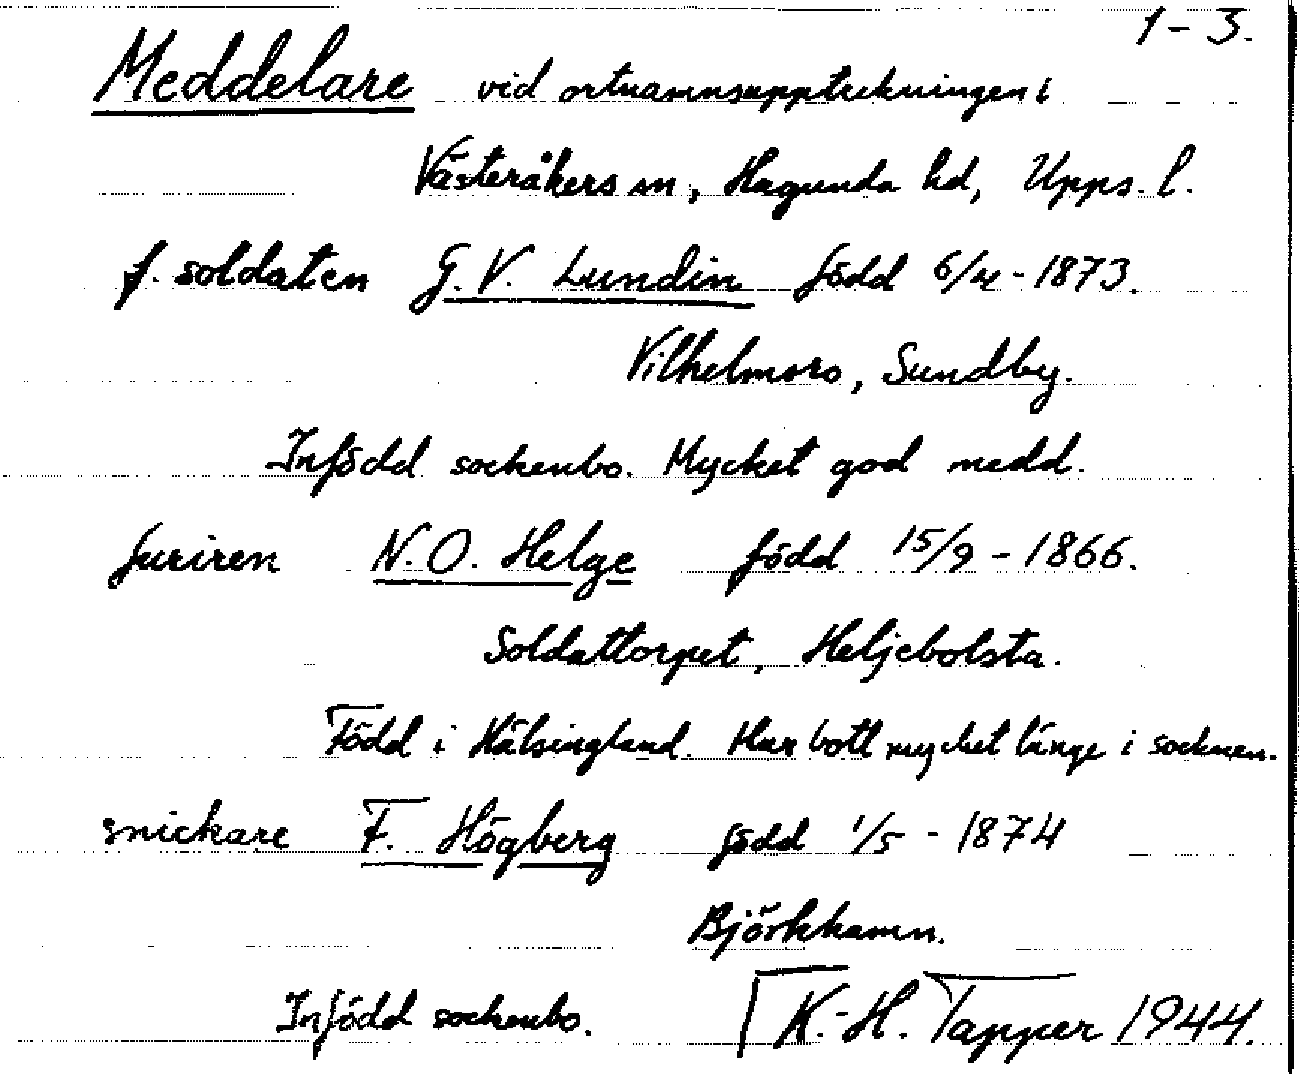 1-3.
Meddelare vid ortnamnsuppteckningen i
Västeråkers sn, Hagunda hd, Upps. l.
f. soldaten G. V. Lundin född 6/4-1873.
Vilhelmsro, Sundby.
Infödd sockenbo. Mycket god medd.
furiren N. O. Helge född 15/9-1866.
Soldattorpet, Heljebolsta.
Född i Hälsingland. Har bott mycket länge i socknen.
snickare F. Högberg född 1/5-1874
Björkhamn.
Infödd sockenbo. K.-H. Tapper 1944.